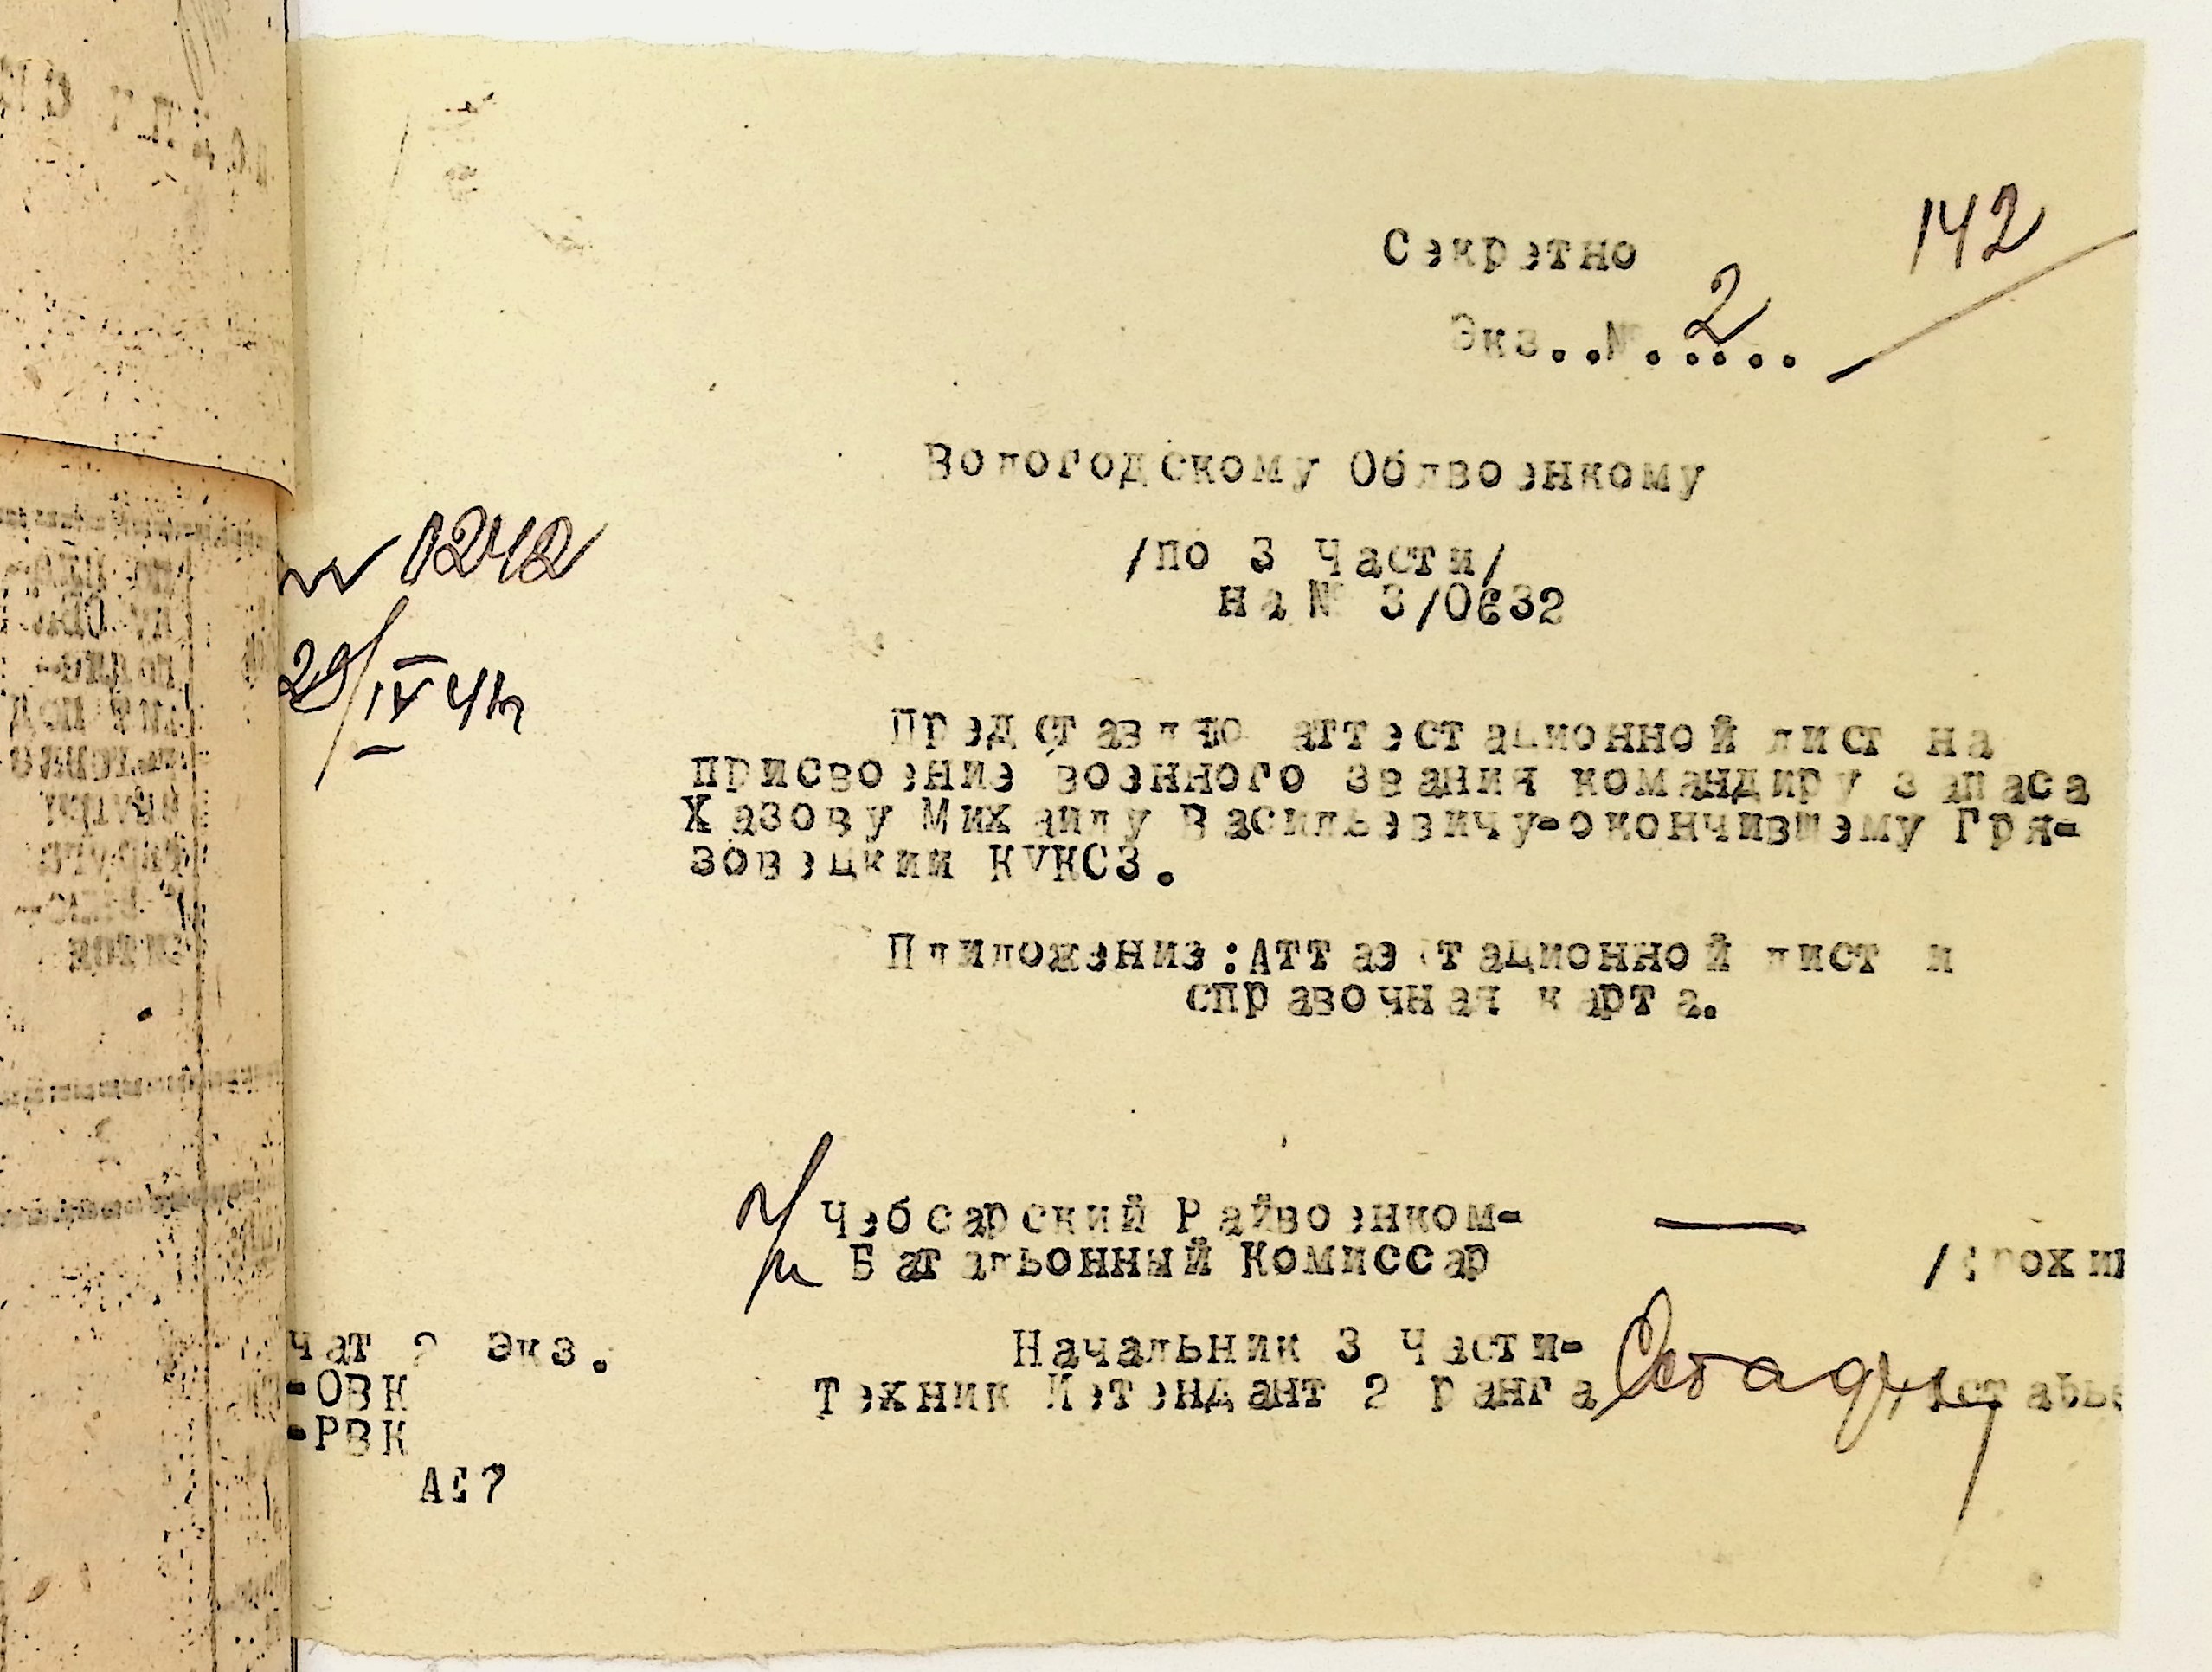 142
Секретно
Экз..№.2....
Вологодскому Облвоенкому
/по 3 Части/
на № 3/0632
1242
29/IV 41г
Представляю аттестационной лист на
присвоение военного звания командиру запаса
Хазову Михаилу Васильевичу-окончившему Гря-
зовецкий КУКСЗ.
Приложение:Аттаестационной лист и
справочная карта.
п/п Чебсарский Райвоенком-
Батальонный Комиссар
Начальник 3 Части-
Техник Истендант 2 ранга
чат 2 Экз.
-ОВК
-РВК